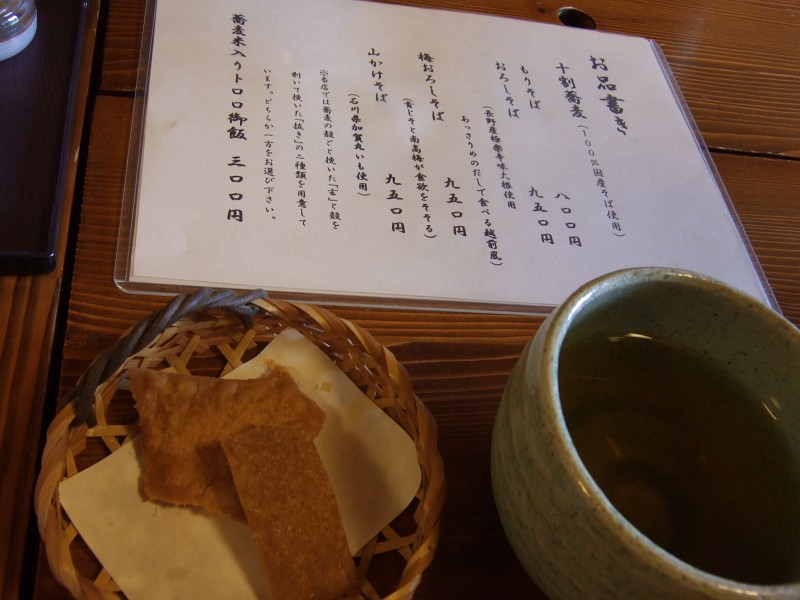 お品書き
十割蕎麦(100%国産そば使用)
もりそば 八〇〇円
おろしそば 九五〇円
(長野産極楽辛味大根使用
あっさりめのだしで食べる越前風)
梅おろしそば 九五〇円
(青じそと南高梅が食欲をそそる)
山かけそば 九五〇円
(石川県加賀丸いも使用)
※当店では蕎麦の殻ごと挽いた「玄」と殻を
剥いて挽いた「抜き」の二種類を用意して
います。どちらか一方をお選び下さい。
蕎麦米入りトロロ御飯 三〇〇円